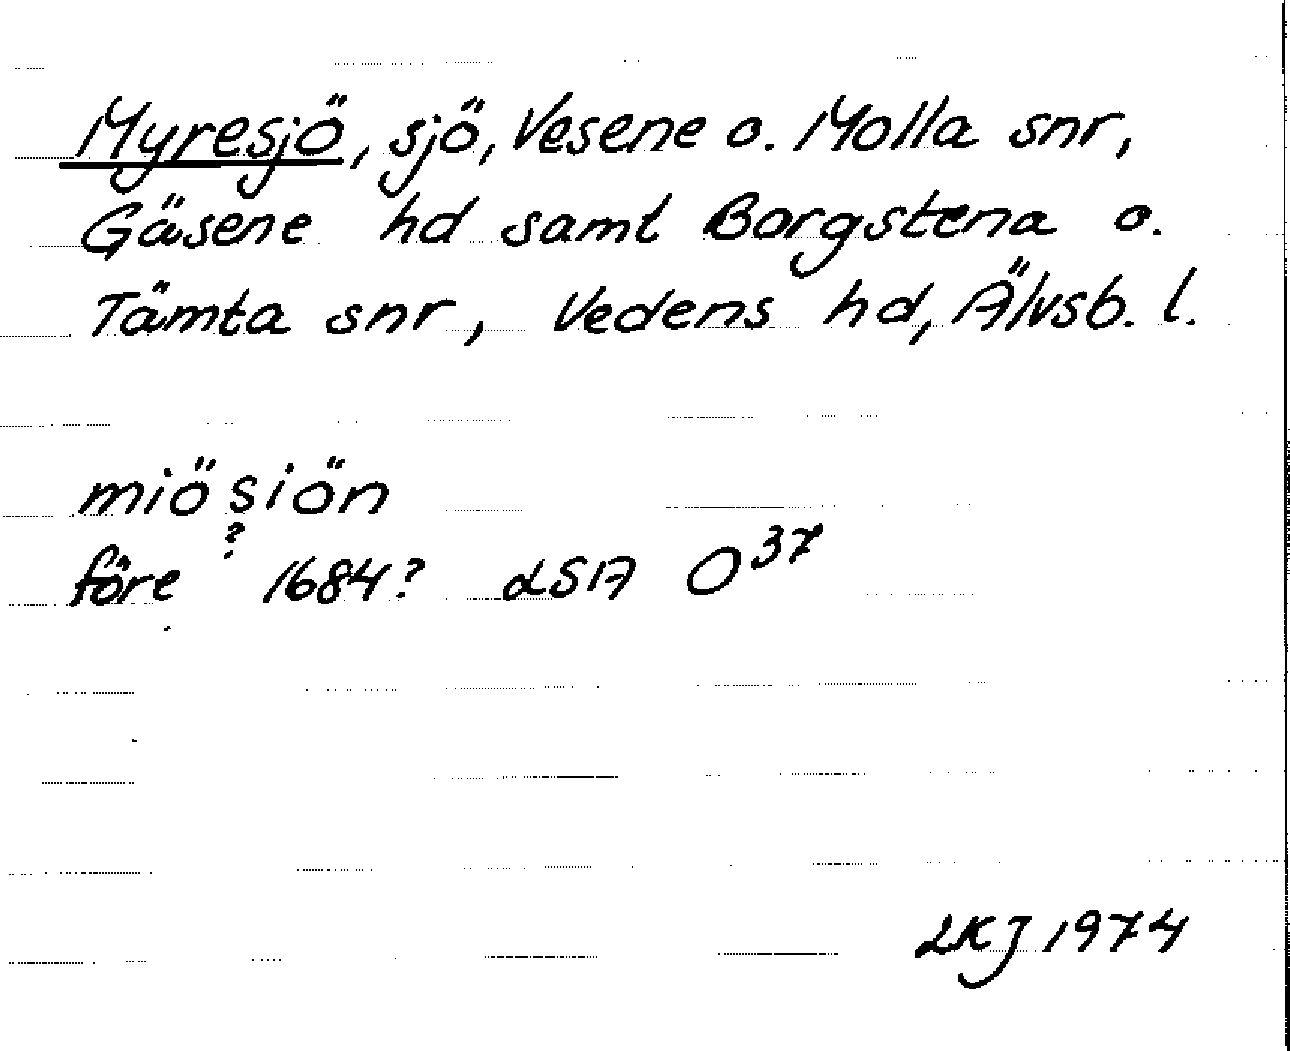 Myresjö, sjö, Vesene o. Molla snr,
Gäsene hd samt Borgstena o.
Tämta snr, Vedens hd, Älvsb. l.
miösiön
?
före 1684? LSA O37
LKJ 1974